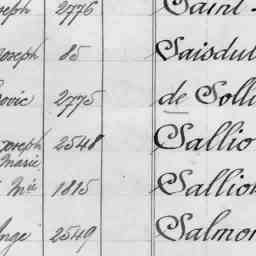 oseph 2776 Saint-
Joseph 85 Saisdu
ovic 2775 de Solli
Joseph Marie 2548 Sallio
Mie 1815 Sallio
Ange 2549 Salmon